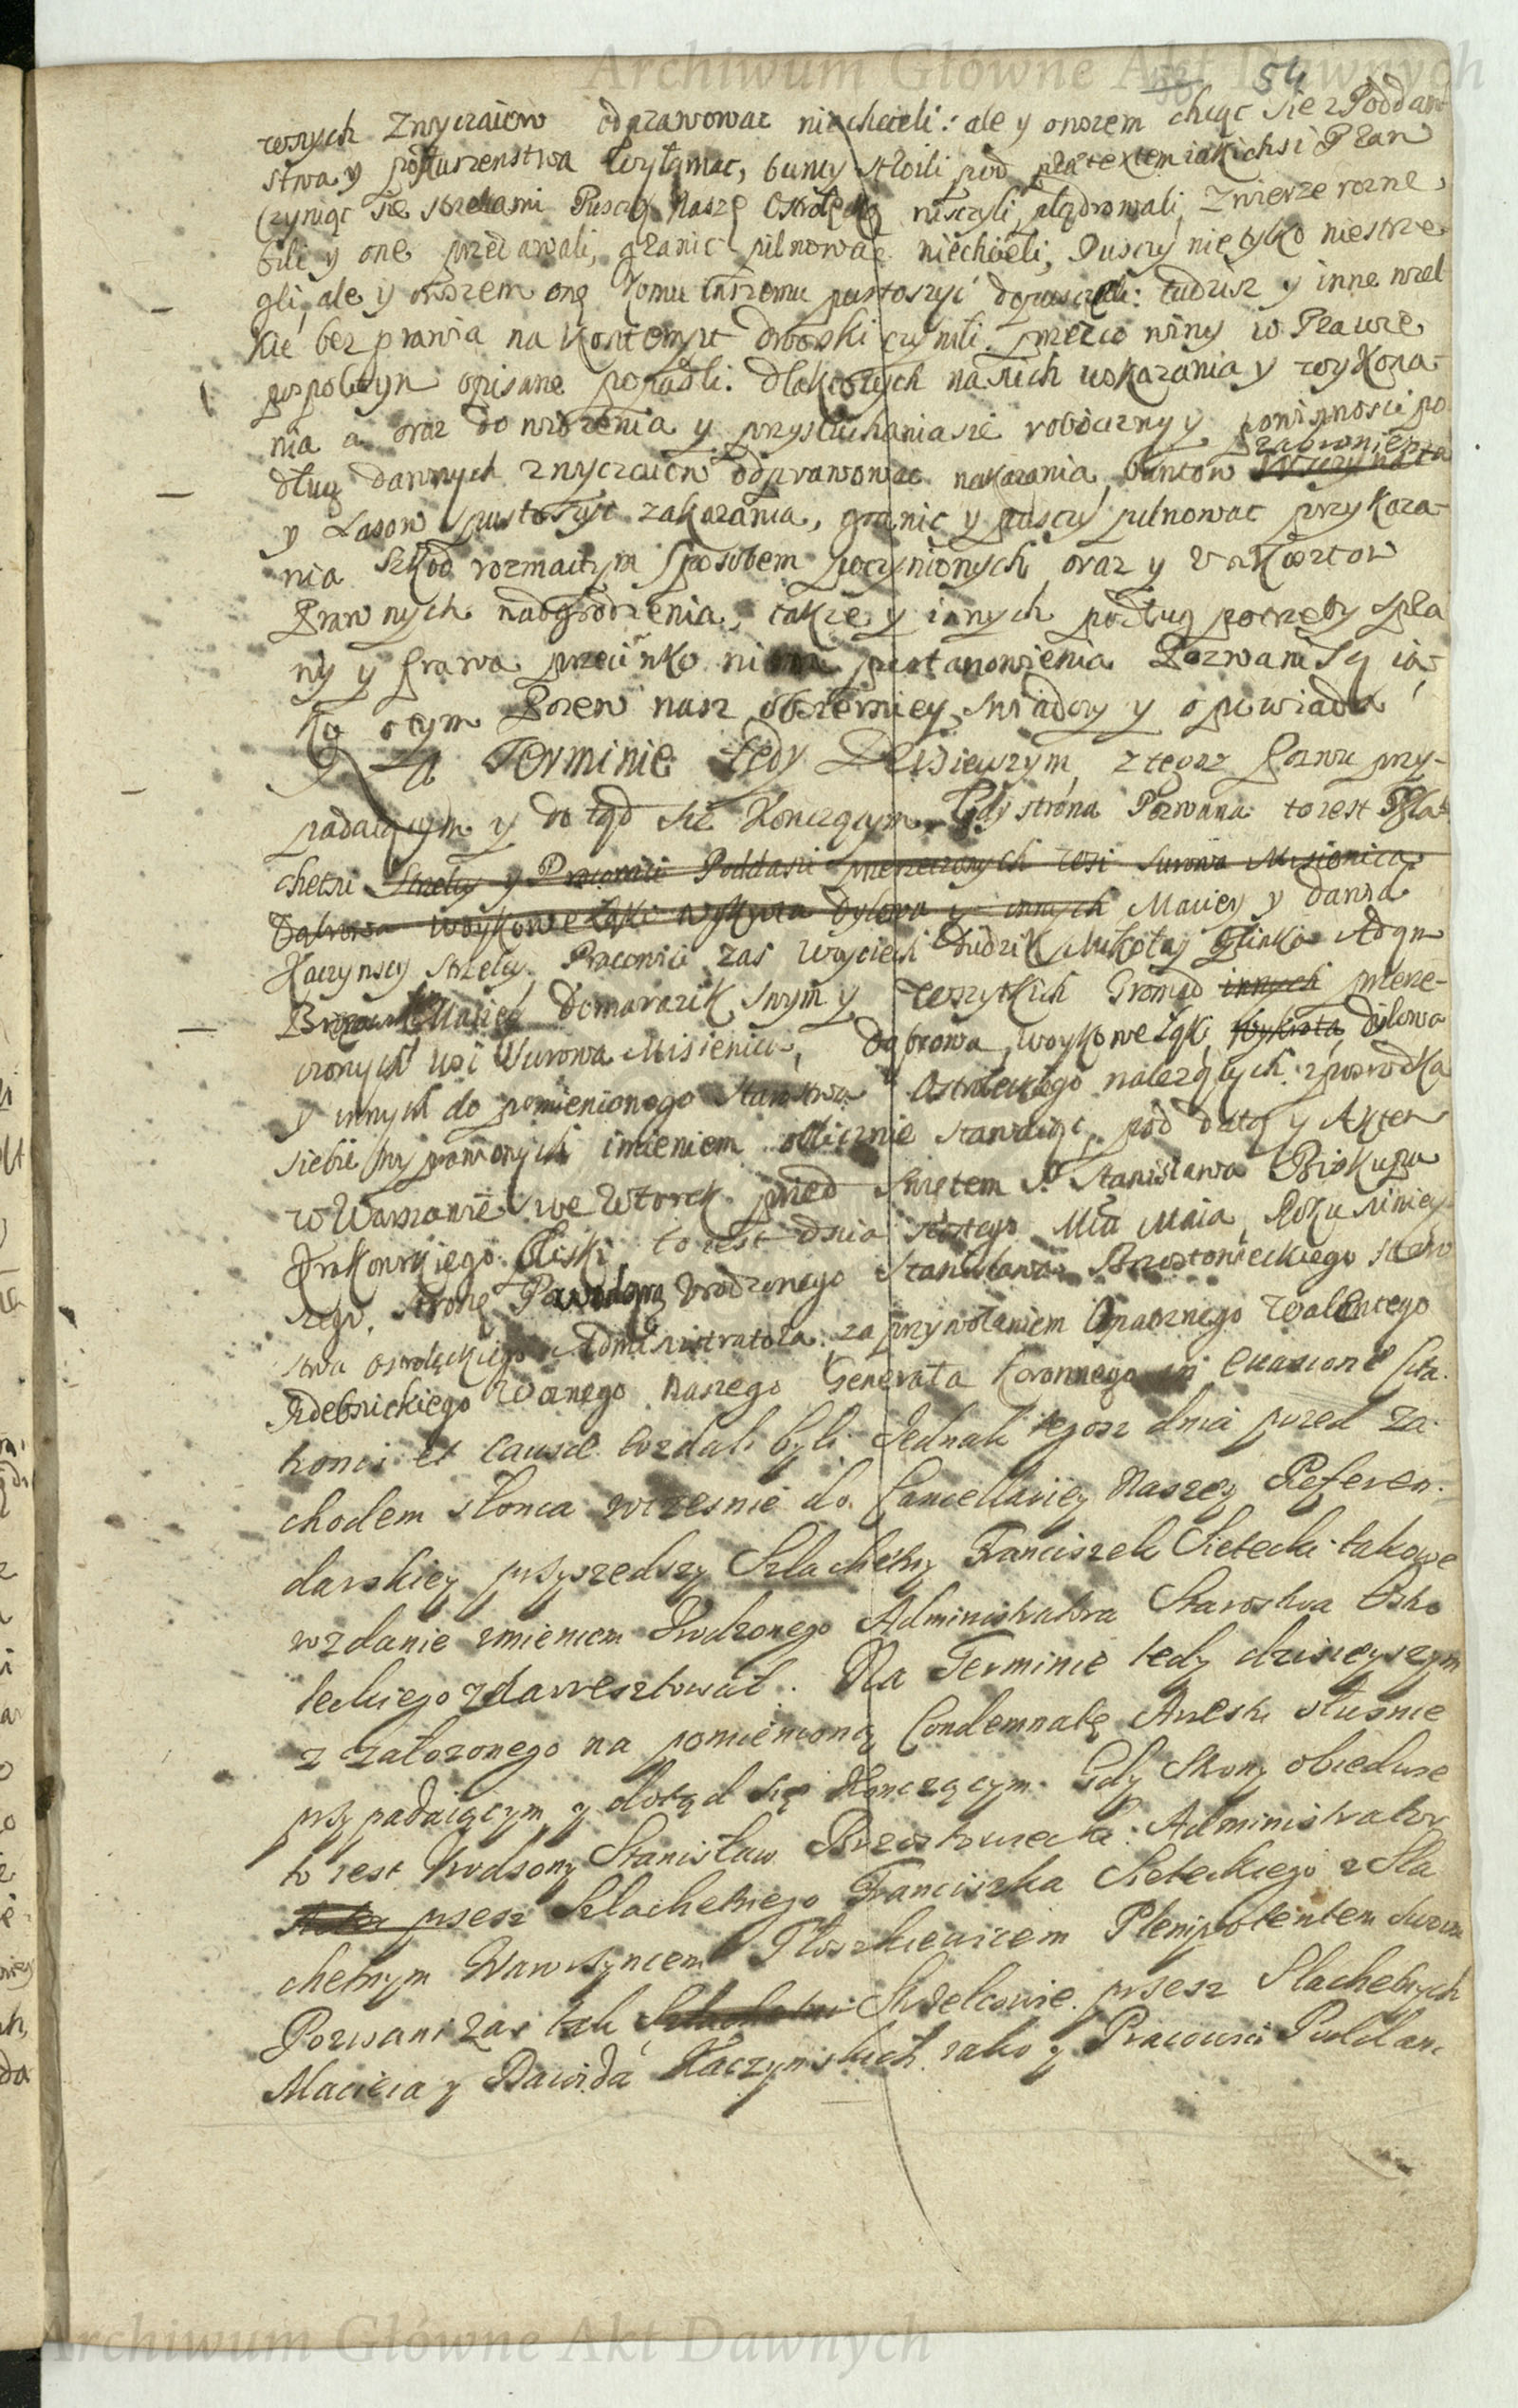 Archiwum Główne Akt Dawnych
54
wnych Zwyczaiow odprawowac niechcieli: ale y owszem chcąc sie z Poddan
stwa y posłuszenstwa wyłąmac, bunty stroili pod praetextem iakichsi Praw
czyniąc sie strzelcami Puszczę Naszę Ostrołęcką niszczyli, plądrowali, Zwierze rozne
bili y one przedawali, granic pilnowac niechcieli, Puszczy nie tylko niestrze
gli, ale y owszem onę komu inszemu pustoszyć dopuszczali: tudzisz y inne wszel
kie bezprawia na Kontempt dworski czynili. przeco winy w Prawie
pospolitym opisane popadli. dla ktorych na nich wskazania y wykona-
nia a oraz do widzenia y przysłuchania sie robocizny y powinnosci po
zabronienia
dług dawnych zwyczaiow odprawowac nakazania, buntow
y Lasow pustoszyć zakazania, granic y puszczy pilnowac przykaza-
nia Szkod rozmaitym sposobem poczynionych, oraz y expensow
Prawnych nadgrodzenia, takze y innych podług potrzeby spra
wy y prawa przeciwko nim postanowienia Pozwani są ia-
ko o tym Pozew nasz obszerniey swiadczy y opowiada
Na Terminie tedy Dzisieyszym, z tegosz pozwu przy-
padaiącym y do tąd sie konczącym. Gdy strona Pozwana to iest Szla-
chetni Strzelcy y Pracowici Poddani pomienionych wsi Surowa Misienica
Dąbrowa Woykowe Łąki Wykrota Dylowa y innych Maciey y Dawid
Kaczynscy Strzelcy, Pracowici zas Woyciech Dudzik Mikołay Glinka Adam
Maciey Domarazik swym y Wszytkich Gromad innych miene-
wonych wsi Wurowa Misienica, Dąbrowa, Woykowe Łąki, Wykrota Dylowa
y innych do pomienionego Starostwa Ostrołeckiego należących, z posrodka
siebie wyprawionych imieniem oblicznie stawaiąc, pod datą y Aktem
w Warszawie we Wtorek przed Swiętem S. Stanisława Biskupa
Krakowskiego blisko to iest dnia szostego Mca Maia, Roku niniey-
szego, stronę Powodową Urodzonego Stanisława Brzostowieckiego Staro
stwa Ostrołęckiego Administratora, za przywołaniem Opatrznego Walentego
Zdebnickiego Woznego Naszego Generała Koronnego in evasione
et causae wzdali byli. Jednak tegosz dnia przed Za-
chodem słonca wczesnie do Cancellariey Naszey Referen-
darskiey przyszedszy Szlachetny Franciszek Sielecki takowe
wzdanie imieniem Urodzonego Administratora Starostwa Ostro
łeckiego zdarresztował. Na Terminie tedy dzisieyszym
z załozonego na pomienioną Condemnatę Aresztu słusnie
przypadaiącym y dotąd się konczącym. Gdy strony obiedwie
to iest Urodzony Stanisław Brzostowiecki Administrator
przesz Szlachetnego Franciszka Sieleckiego z Szla
chetnym Wawrzyncem Płoszkiewicem Plenipotentem
Pozwani zas tak Szlachetni Strzelcowie przesz Slachetnych
Macieia y Dawida Kaczynskich iako y Pracowici Poddani
Archiwum Główne Akt Dawnych